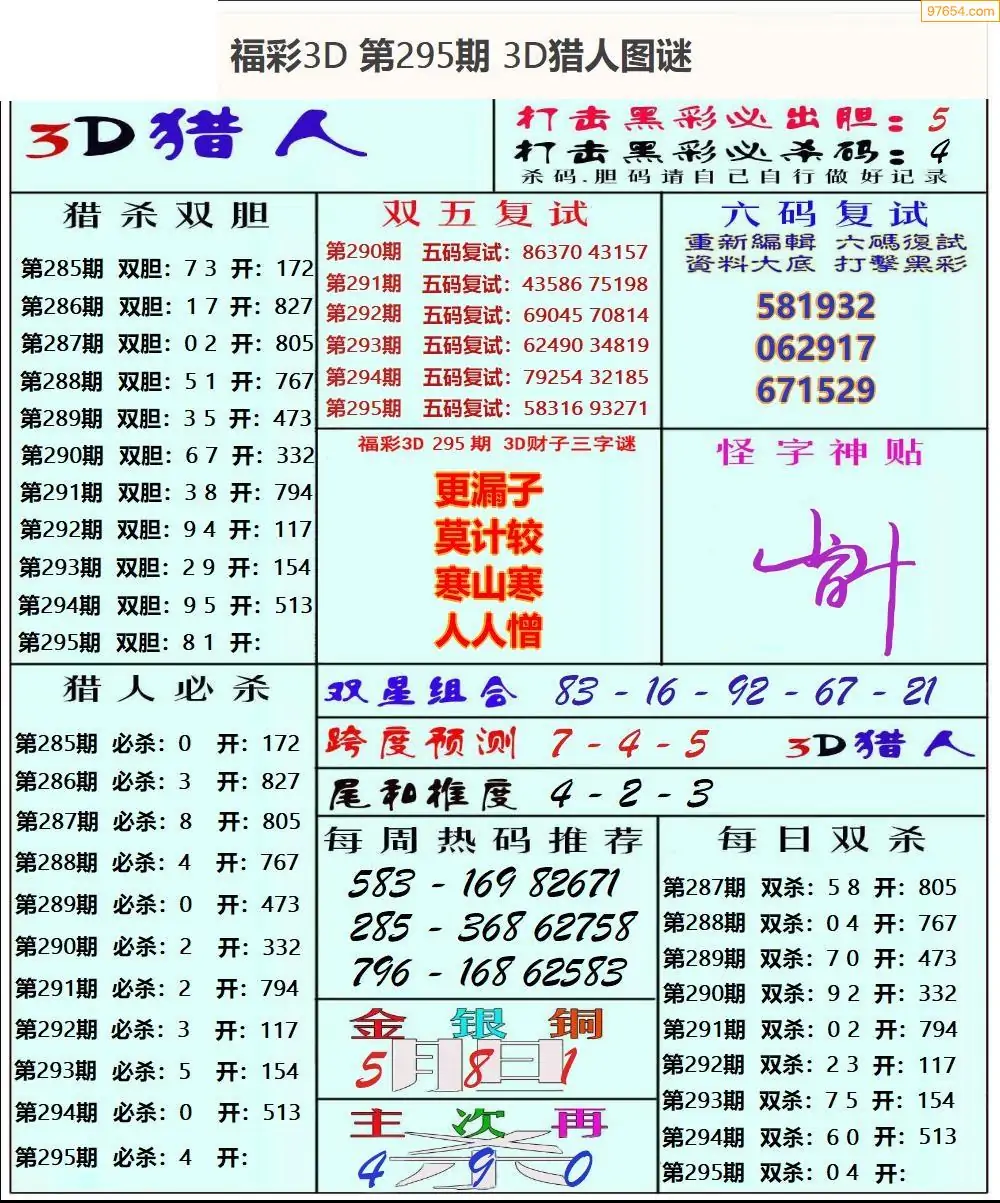 97654.com
福彩3D 第295期 3D猎人图谜
3D猎人
打击黑彩必出胆：5
打击黑彩必杀码：4
杀码.胆码请自己自行做好记录
猎杀双胆
第285期 双胆：7 3 开：172
第286期 双胆：1 7 开：827
第287期 双胆：0 2 开：805
第288期 双胆：5 1 开：767
第289期 双胆：3 5 开：473
第290期 双胆：6 7 开：332
第291期 双胆：3 8 开：794
第292期 双胆：9 4 开：117
第293期 双胆：2 9 开：154
第294期 双胆：9 5 开：513
第295期 双胆：8 1 开：
双五复试
第290期 五码复试：86370 43157
第291期 五码复试：43586 75198
第292期 五码复试：69045 70814
第293期 五码复试：62490 34819
第294期 五码复试：79254 32185
第295期 五码复试：58316 93271
六码复试
重新編輯 六碼復試
資料大底 打擊黑彩
581932
062917
671529
福彩3D 295 期 3D财子三字谜
更漏子
莫计较
寒山寒
人人憎
怪字神贴
猎人必杀
第285期 必杀：0 开：172
第286期 必杀：3 开：827
第287期 必杀：8 开：805
第288期 必杀：4 开：767
第289期 必杀：0 开：473
第290期 必杀：2 开：332
第291期 必杀：2 开：794
第292期 必杀：3 开：117
第293期 必杀：5 开：154
第294期 必杀：0 开：513
第295期 必杀：4 开：
双星组合 83 - 16 - 92 - 67 - 21
跨度预测 7 - 4 - 5 3D猎人
尾和推度 4 - 2 - 3
每周热码推荐
583 - 169 82671
285 - 368 62758
796 - 168 62583
金银铜
胆
5 8 1
主次再
杀
4 9 0
每日双杀
第287期 双杀：5 8 开：805
第288期 双杀：0 4 开：767
第289期 双杀：7 0 开：473
第290期 双杀：9 2 开：332
第291期 双杀：0 2 开：794
第292期 双杀：2 3 开：117
第293期 双杀：7 5 开：154
第294期 双杀：6 0 开：513
第295期 双杀：0 4 开：